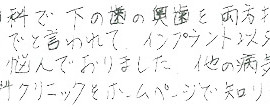 科で下の歯の奥歯を両方
でと言われて、インプラント以
悩んでおりました。他の病
クリニックをホームページで知り